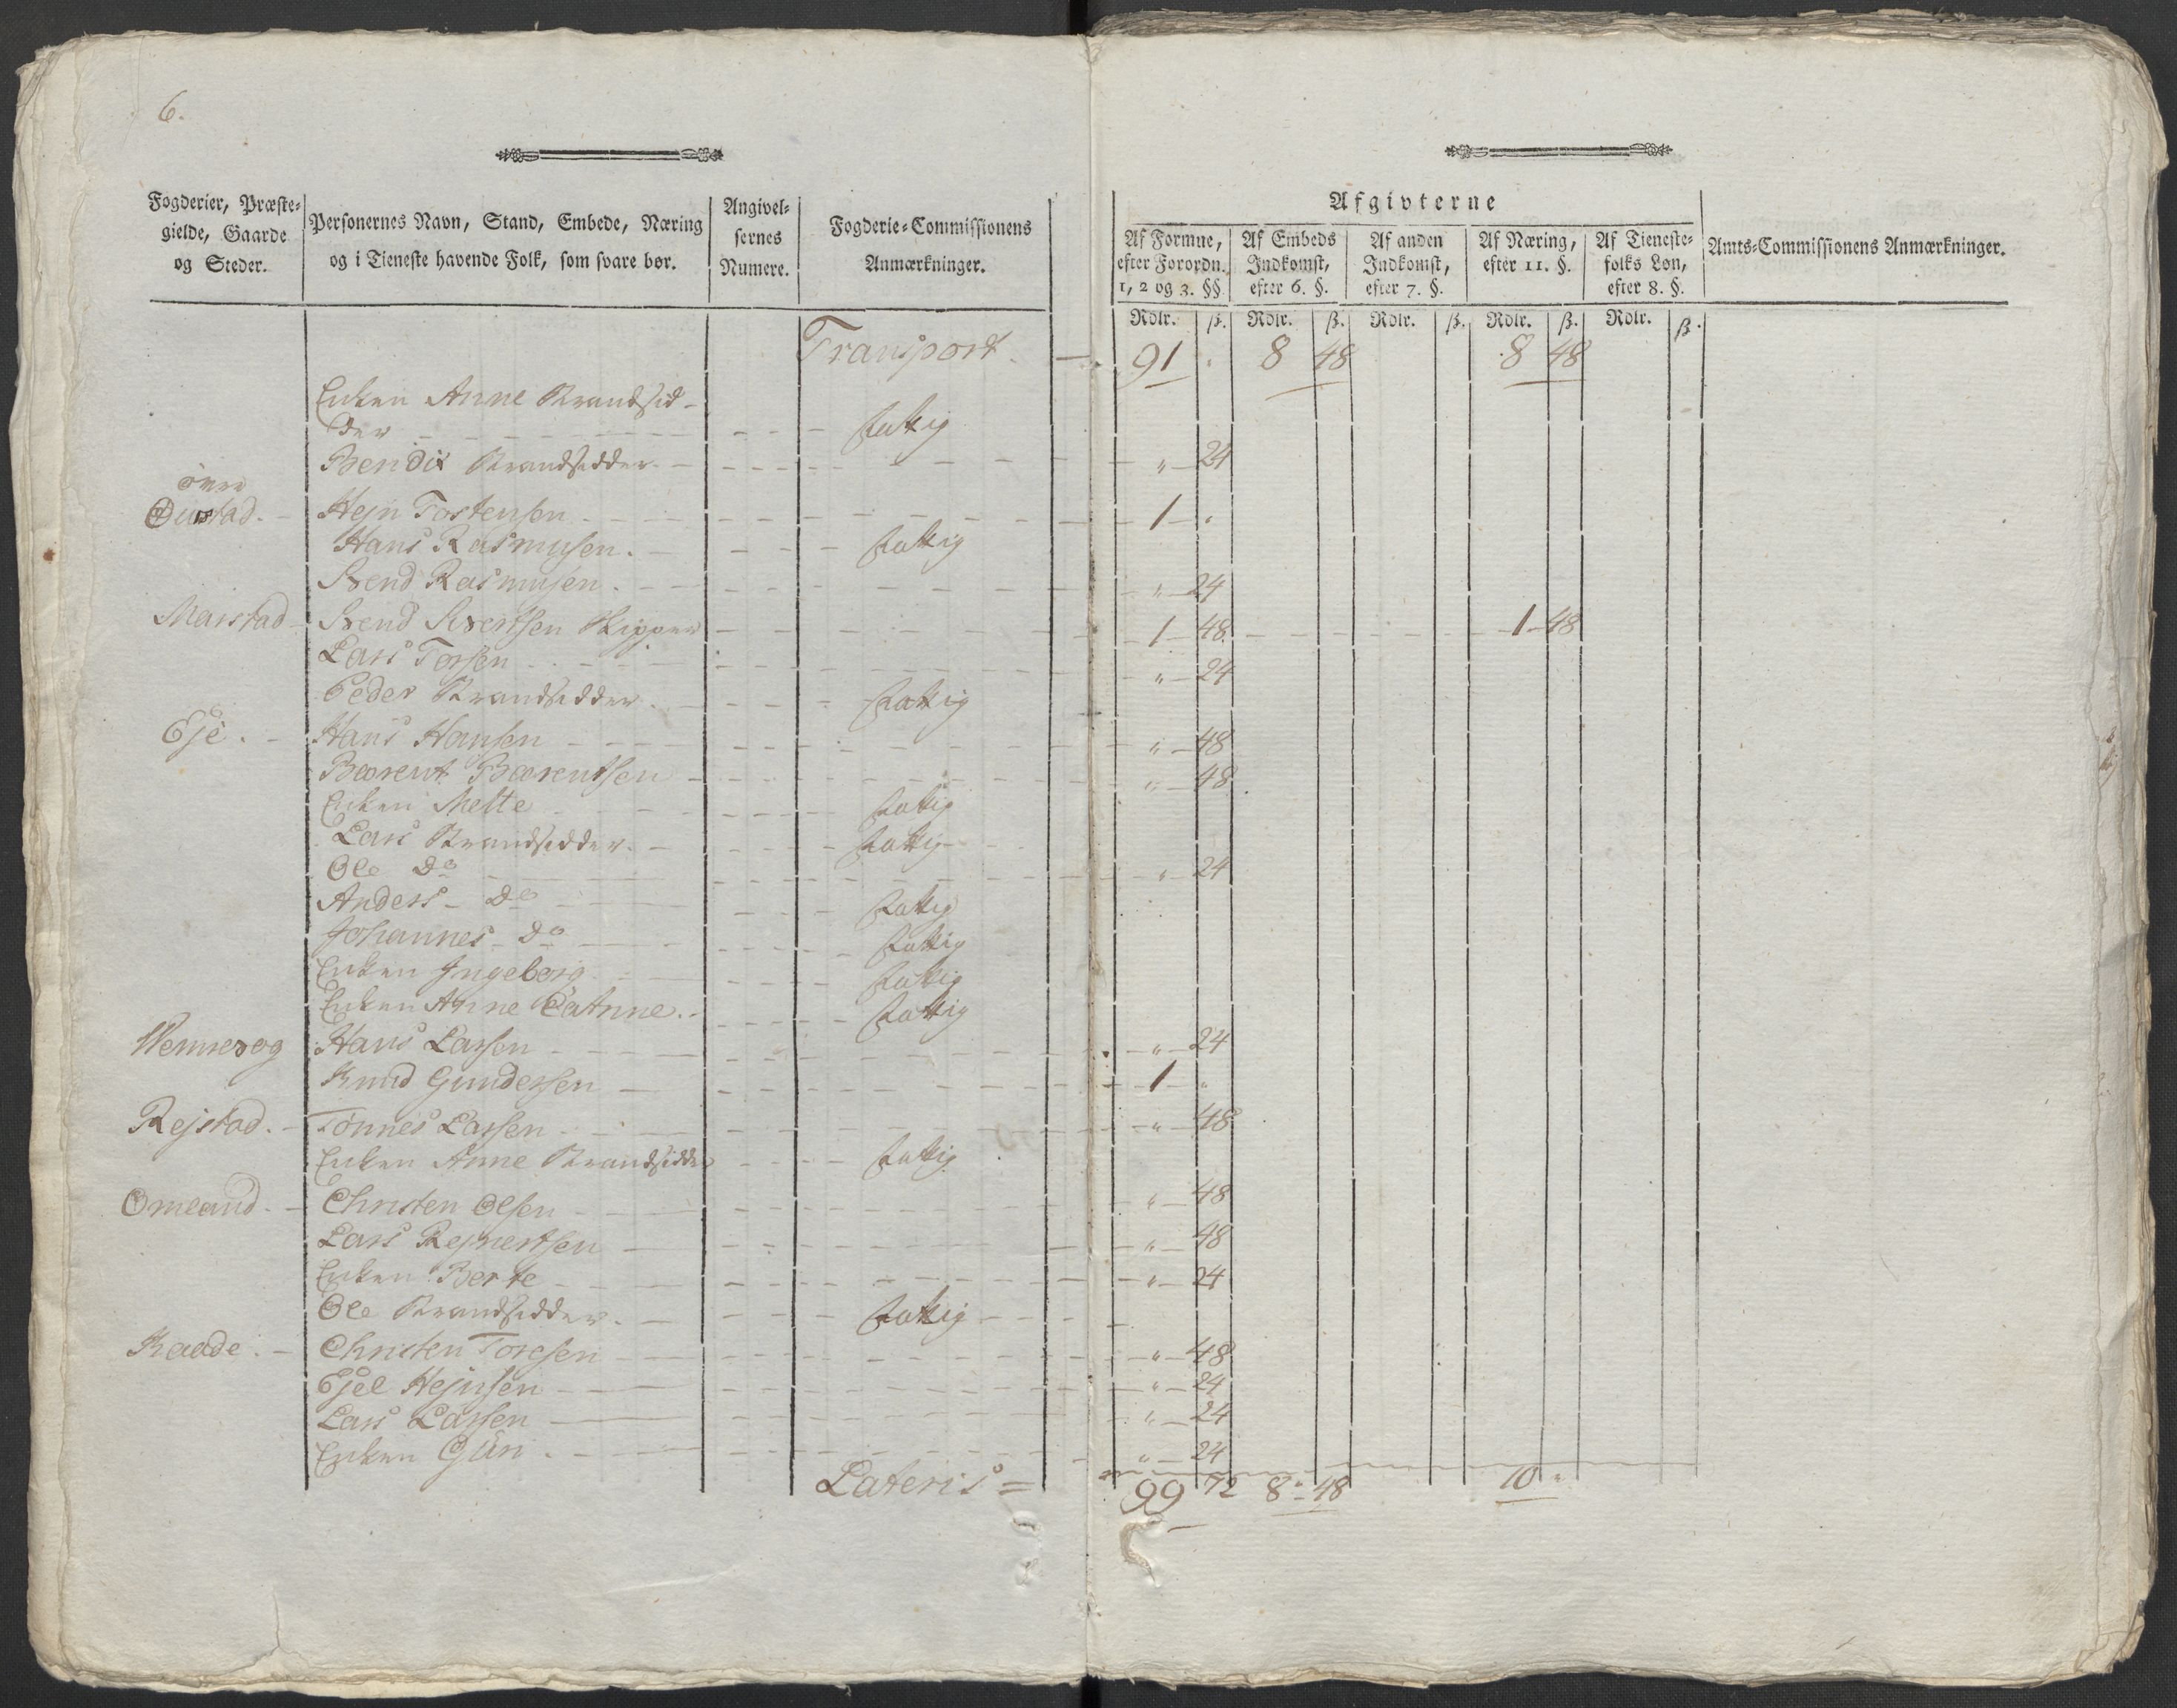 6.
Fogderier, Præste-
gielde, Gaarde
og Steder.
Personernes Navn, Stand, Embede, Næring
og i Tieneste havende Folk, som svare bør.
Angivel-
sernes
Numere.
Fogderie-Commissionens
Anmærkninger.
Afgivterne
Af Formue,
efter Forordn.
1, 2 og 3. §§.
Af Embeds
Indkomst,
efter 6. §.
Af anden
Indkomst,
efter 7. §.
Af Næring,
efter 11. §.
Af Tieneste-
folks Løn,
efter 8. §.
Amts-Commissionens Anmærkninger.
Rdlr. ß. Rdlr. ß. Rdlr. ß. Rdlr. ß. Rdlr. ß.
Transport. 91 " 8 48 8 48
Enken Anne Strandsid-
der fattig
Bendix Strandsidder " 24
øvre
Hejn Tostensen 1 "
Hans Rasmusen. fattig
Svend Rasmusen. " 24
Svend Sivertsen Skipper 1 48 1 48
Lars Torsen " 24
Peder Strandsidder. fattig
Eje. Hans Hansen " 48
Bærent Bærentsen " 48
Enken Mette fattig
Lars Strandsidder. fattig
Ole Do " 24
Anders Do fattig
Johannes Do fattig
Enken Ingeborg fattig
Enken Anne CaAnne. fattig
Hans Larsen " 24
Knud Gundersen 1 "
Rejstad. Tönnes Larsen " 48
Enken Anne Strandsidder fattig
Omland. Christen Olsen " 48
Lars Rejnertsen " 48
Enken Berte " 24
Ole Strandsidder. fattig
Raade. Christen Toresen " 48
Ejel Hejnsen " 24
Lars Larsen " 24
Enken Guri " 24
Lateris = 99 72 8 " 48 10 "